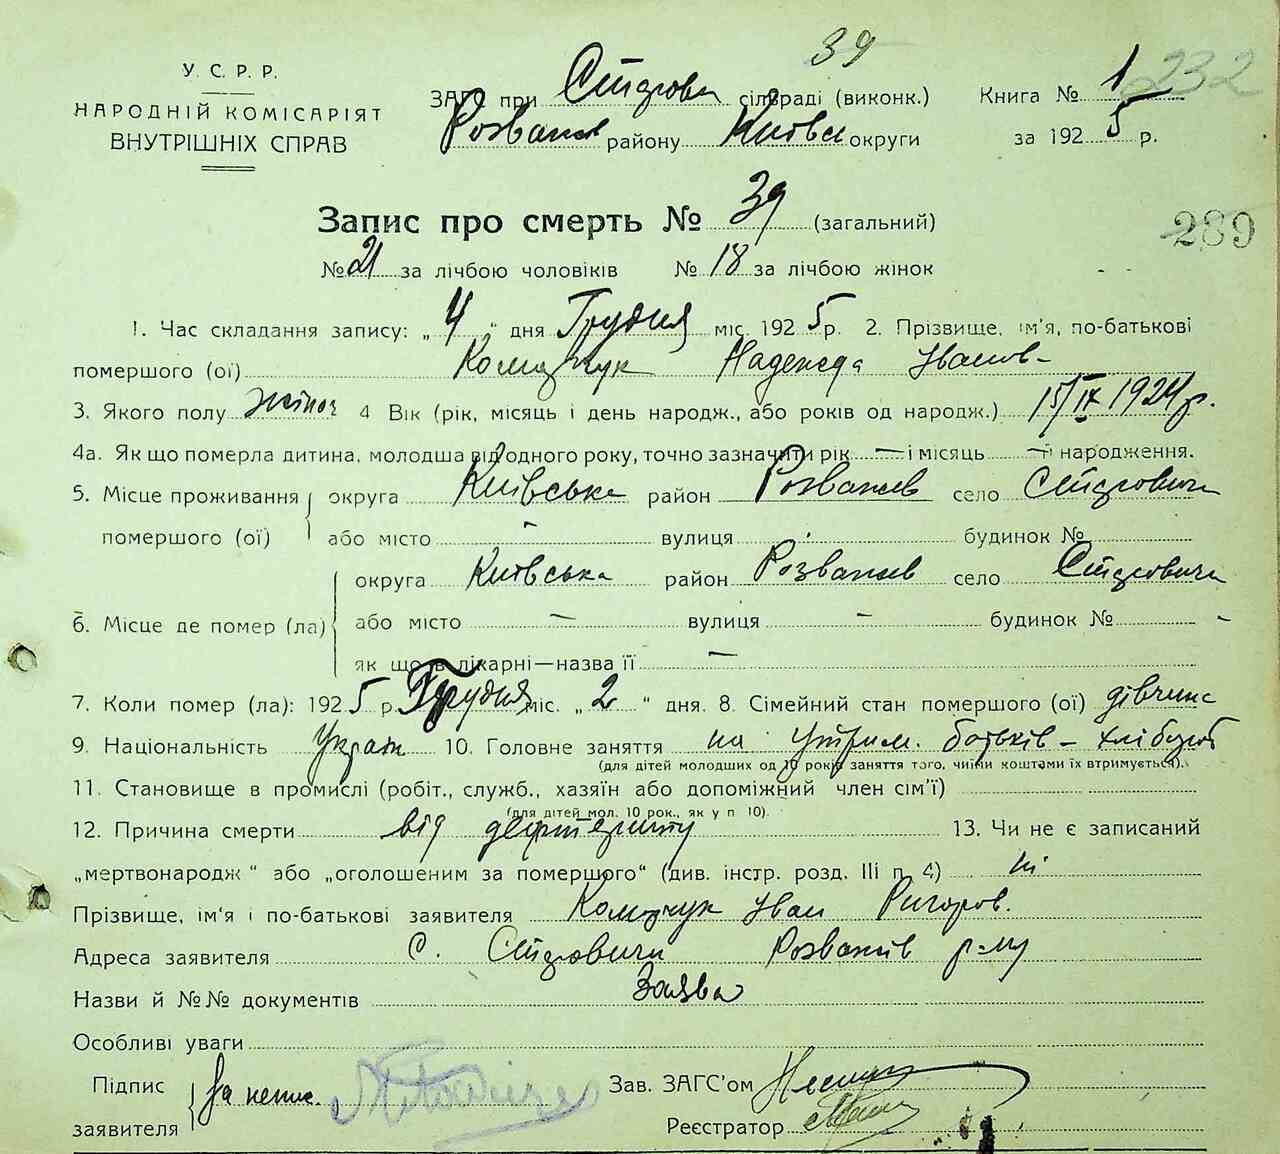 39
У. С. Р. Р.
НАРОДНІЙ КОМІСАРІЯТ
ВНУТРІШНІХ СПРАВ
ЗАГС при сільраді (виконк.)
Розважів району Київськ округи
Книга № 1
за 1925 р.
232
289
Запис про смерть № 39 (загальний)
№ 21 за лічбою чоловіків № 18 за лічбою жінок
1. Час складання запису: „ 4 " дня Грудня міс. 1925 р. 2. Прізвище, ім'я, по-батькові
помершого (ої) Надежда Іванов-
3. Якого полу жіноч 4 Вік (рік, місяць і день народж., або років од народж.) 15/IX 1924 р.
4а. Як що померла дитина, молодша від одного року, точно зазначити рік — і місяць — і народження.
5. Місце проживання округа Київська район Розважев село
помершого (ої) або місто - вулиця будинок №
6. Місце де помер (ла) округа Київська район Розважев село
або місто — вулиця — будинок № -
як що в лікарні—назва її —
7. Коли помер (ла): 1925 р. Грудня міс. „ 2 " дня. 8. Сімейний стан помершого (ої) дівчина
9. Національність Україн 10. Головне заняття на утрим. батьків – хлібороб
(для дітей молодших од 10 років заняття того, чиїми коштами їх втримується).
11. Становище в промислі (робіт., служб., хазяїн або допоміжний член сім'ї)
(для дітей мол. 10 рок., як у п 10).
12. Причина смерти від 13. Чи не є записаний
„мертвонародж" або „оголошеним за помершого" (див. інстр. розд. III п. 4) ні
Прізвище, ім'я і по-батькові заявителя Іван Григоров.
Адреса заявителя с. Розважів р-ну
Назви й №№ документів Заява
Особливі уваги
Підпис заявителя не пис.
Зав. ЗАГС'ом
Реєстратор